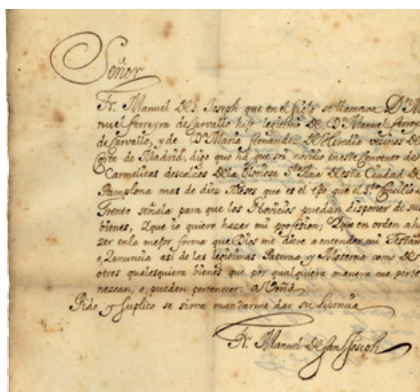 Señor
Fr. Manuel de S. Joseph que en el siglo se llamava Dn. Ma
nuel ferreyra de Carvallo hijo legitimo de Dn. Manuel ferrey
de Carvallo, y de Da. Maria fernandez de Heredia vecinos de
Corte de Madrid, digo que há que soi novicio en este Convento de
Carmelitas descalços de la Gloriosa Sta. Ana desta Ciudad de
Pamplona mas de diez Meses que es el tpo que el Sto. Conçilio
Trento señala para que los Noviçios puedan disponer de sus
bienes, y que io quiero hazer mi profesion; y que en orden a ha
zer en la mejor forma que Dios me diere a entender mi Testam
o, Renuncia asi de las legitimas Paterna, y Materna como de
otros qualesquiera bienes que por qualquiera manera me perte
nezcan, o, pueden pertenecer; a
Pido y suplico se sirva mandarme dar su Licencia
Fr. Manuel de San Joseph